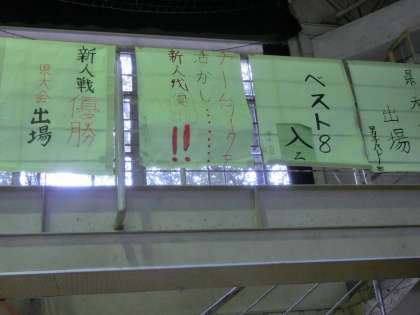 新人戦優勝
県大会出場
チームワークを
活かし……
新人戦優
!!
ベスト8
入る
県大
出場